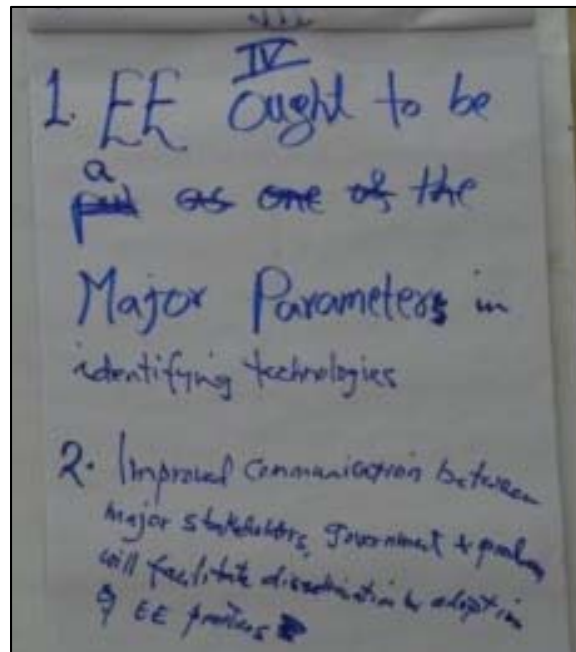 IV
1. EE Ought to be
a
put as one of the
Major Parameters in
identifying technologies
2. Improved Communication between
Major stakeholders, Government &
will facilitate dissemination & adoption
of EE